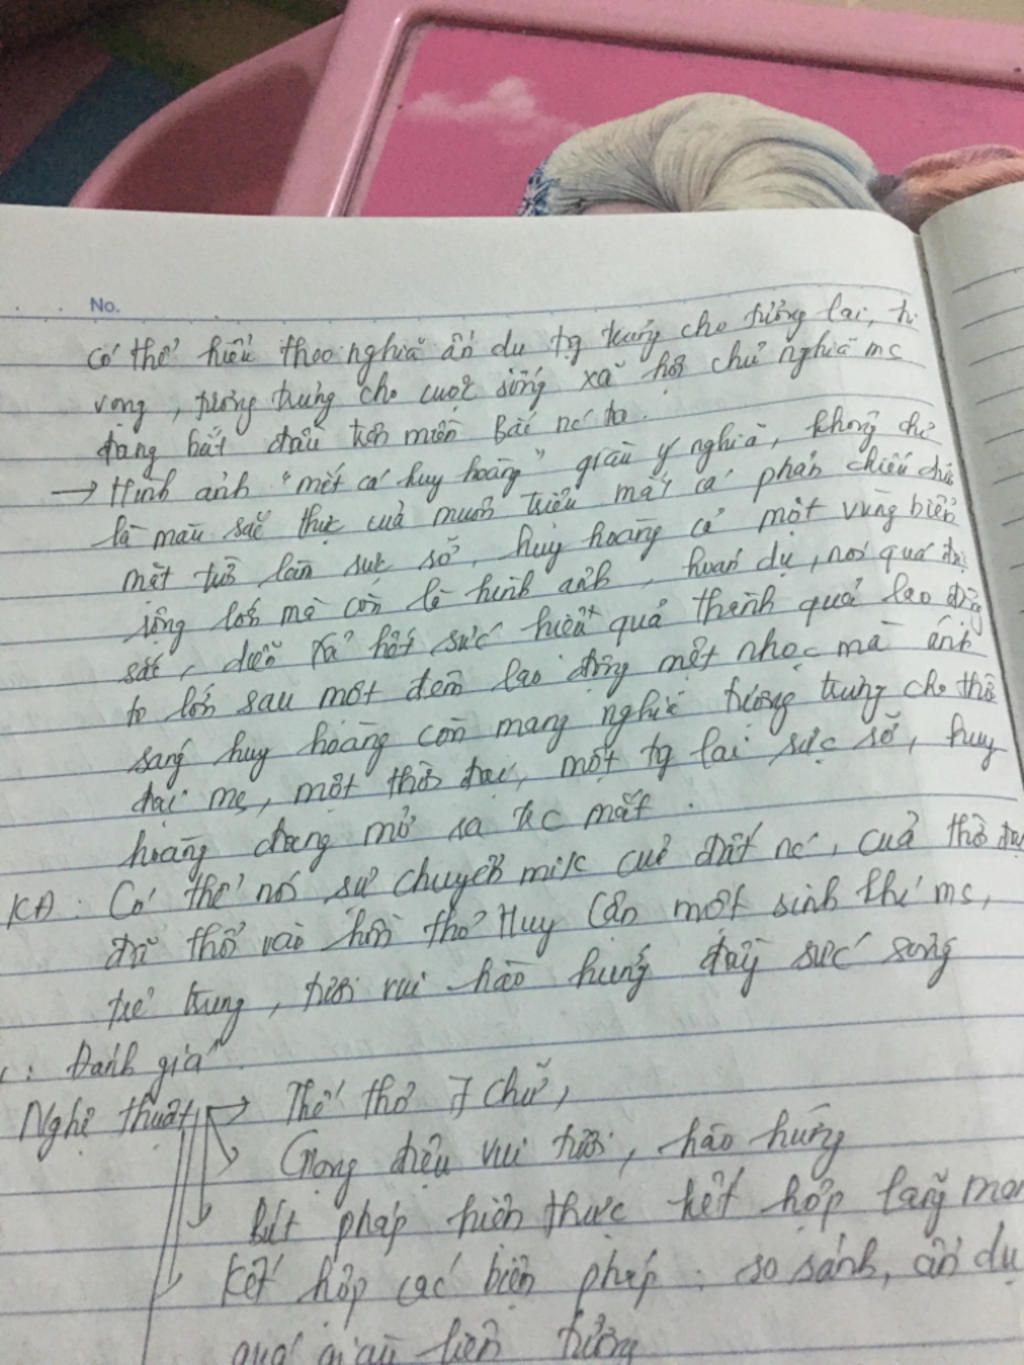 No.
có thể hiểu theo nghĩa ẩn dụ tg trưng cho tương lai, hi
vọng, tượng trưng cho cuộc sống xã hội chủ nghĩa ms
đang bắt đầu trên miền Bắc nc ta.
→ Hình ảnh "mắt cá huy hoàng" giàu ý nghĩa, không chỉ
là màu sắc thực của muôn triệu mắt cá phản chiếu
mặt trời làm rực rỡ, huy hoàng cả một vùng biển
rộng lớn mà còn là hình ảnh, hoán dụ, nói quá
sắc, diễn tả hết sức hiệu quả thành quả lao động
to lớn sau một đêm lao động mệt nhọc mà ánh
sáng huy hoàng còn mang nghĩa tượng trưng cho thời
đại ms, một thời đại, một tg lai rực rỡ, huy
hoàng đang mở ra trc mắt.
KĐ: Có thể nói sự chuyển mình của đất nc, của thời đại
đã thổi vào hồn thơ Huy Cận một sinh khí ms,
trẻ trung, tươi vui hào hứng đầy sức sống
: Đánh giá
Nghệ thuật → Thể thơ 7 chữ,
Giọng điệu vui tươi, hào hứng
Bút pháp hiện thực kết hợp lãng mạn
Kết hợp các biện pháp: so sánh, ẩn dụ
quá giàu liên tưởng